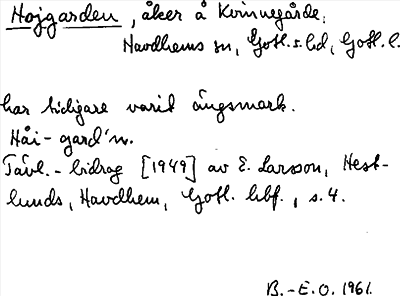 Hojgarden, åker å Kvinnegårde,
Havdhems sn, Gotl. s. hd, Gotl. l.
har tidigare varit ängsmark.
Håi-gard'n.
Tävl.-bidrag [1949] av E. Larsson, Hest-
lunds, Havdhem, Gotl. hbf., s. 4.
B.-E.O. 1961.